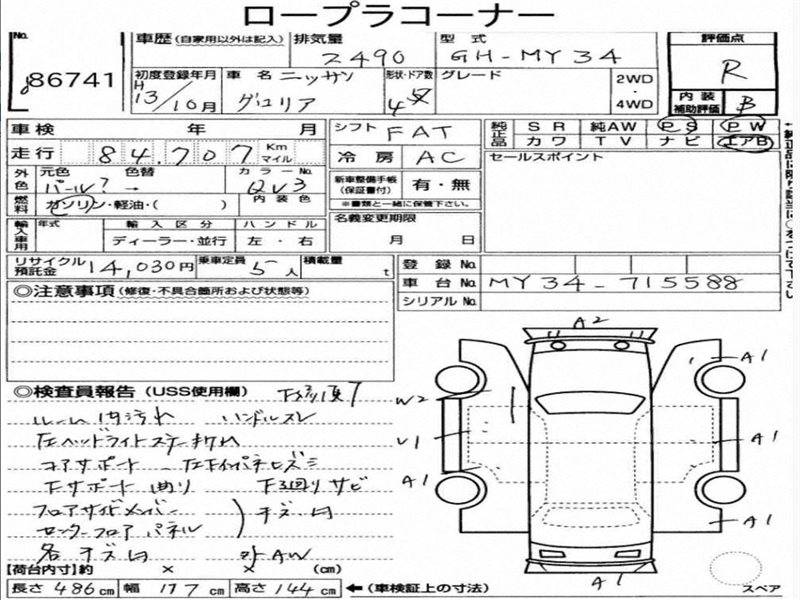 ロープラコーナー
No. 86741
車歴 (自家用以外は記入) 排気量 2490 型式 GH-MY34
評価点 R
初度登録年月 H13/10月 車名 ニッサン グロリア 形状・ドア数 4 グレード 2WD・4WD
内装補助評価 B
車検 年 月
シフト FAT
純正品 SR 純AW PS PW
カワ TV ナビ エアB
走行 84,707 Km マイル
冷房 AC
セールスポイント
外色 元色 パール? → 色替 カラーNo. QV3
新車整備手帳 (保証書付) 有・無
※書類と一緒に保管下さい。
燃料 ガソリン・軽油・( ) 内装色
名義変更期限 月 日
輸入車用 年式 輸入区分 ディーラー・並行 ハンドル 左・右
リサイクル預託金 14,030円 乗車定員 5人 積載量 t
登録No.
車台No. MY34-715588
シリアルNo.
◎注意事項 (修復・不具合箇所および状態等)
◎検査員報告 (USS使用欄)
ルーム内汚れ ハンドルスレ
左ヘッドライトステー切れ
コアサポート
下サポート曲り 下回りサビ
フロアサイドメンバー
センターフロアパネル
各キズ凹 外AW
A2
W2
A1
U1
A1
A1
A1
A1
スペア
【荷台内寸】約 × × (cm)
長さ 486cm 幅 177cm 高さ 144cm ←(車検証上の寸法)